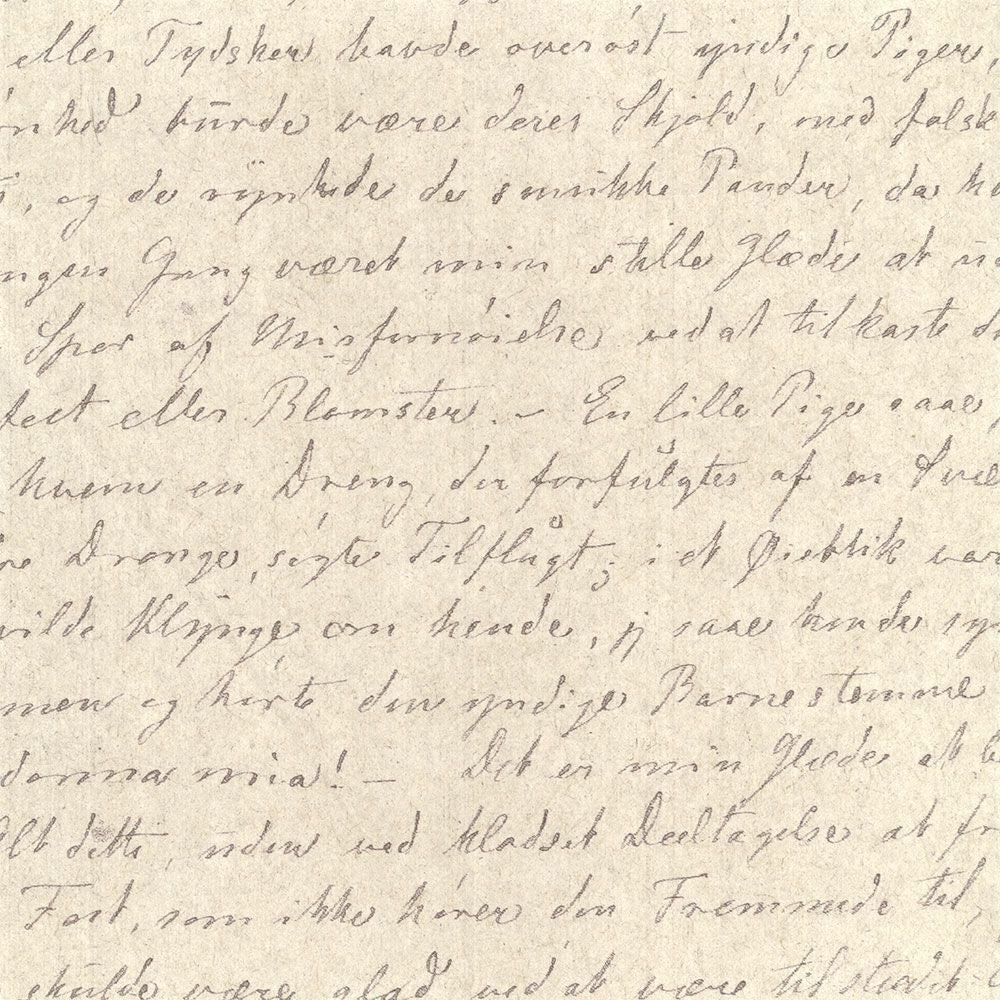 eller Tydsker havde overøst yndige Piger,
ønhed burde være deres Skjold, med falsk
, og de rynkede de smukke Pander, da ha
ngen Gang været min stille Glæde at u
Spor af Misfornøielse ved at tilkaste d
fect eller Blomster. – En lille Pige saae
hvem en Dreng, der forfulgtes af en Svæ
re Drenge, søgte Tilflugt; i et Øieblik var
vilde Klynge om hende, jeg saae hende sy
men og hørte den yndige Barnestemme
donna mia! – Det er min Glæde at b
Alt dette, uden ved Deeltagelse at fr
Fest, som ikke hører den Fremmede til,
skulde være glad ved at være tilstede